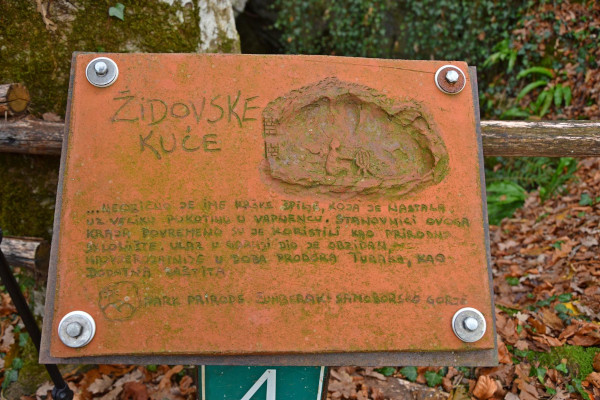 ŽIDOVSKE
KUĆE
...NEOBIČNO JE IME KRŠKE ŠPILJE, KOJA JE NASTALA
UZ VELIKU PUKOTINU U VAPNENCU. STANOVNICI OVOGA
KRAJA POVREMENO SU JE KORISTILI KAO PRIRODNO
SKLONIŠTE. ULAZ U GORNJI DIO JE OBZIDAN,
NAJVJEROJATNIJE U DOBA PRODORA TURAKA, KAO
DODATNA ZAŠTITA.
PARK PRIRODE ŽUMBERAK - SAMOBORSKO GORJE
4